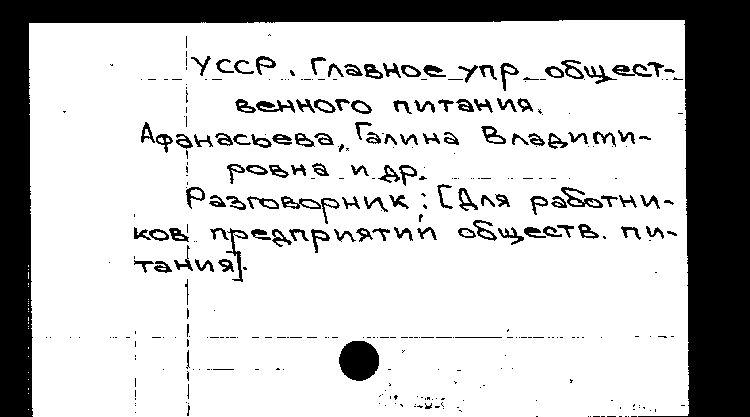 УССР. Главное упр. общест-
венного питания.
Афанасьева, Галина Владими-
ровна и др.
Разговорник : [Для работни-
ков предприятий обществ. пи-
тания].